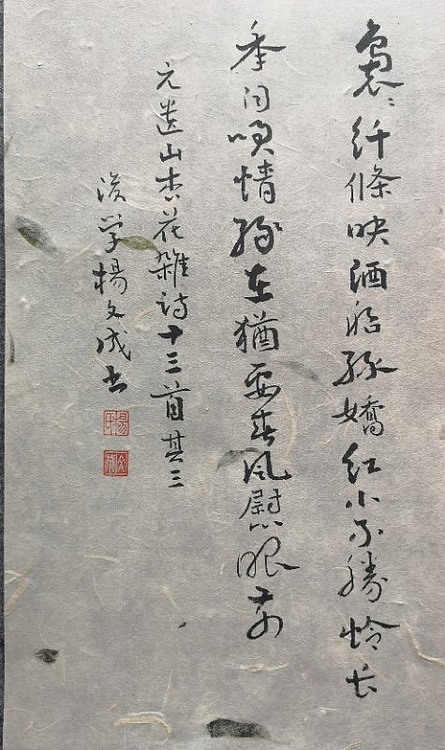 袅〻纤條映酒船绿嬌红小不勝怜长
年自咲情缘在猶要春风慰眼前
元遗山杏花雜诗十三首其三
後学楊文成书